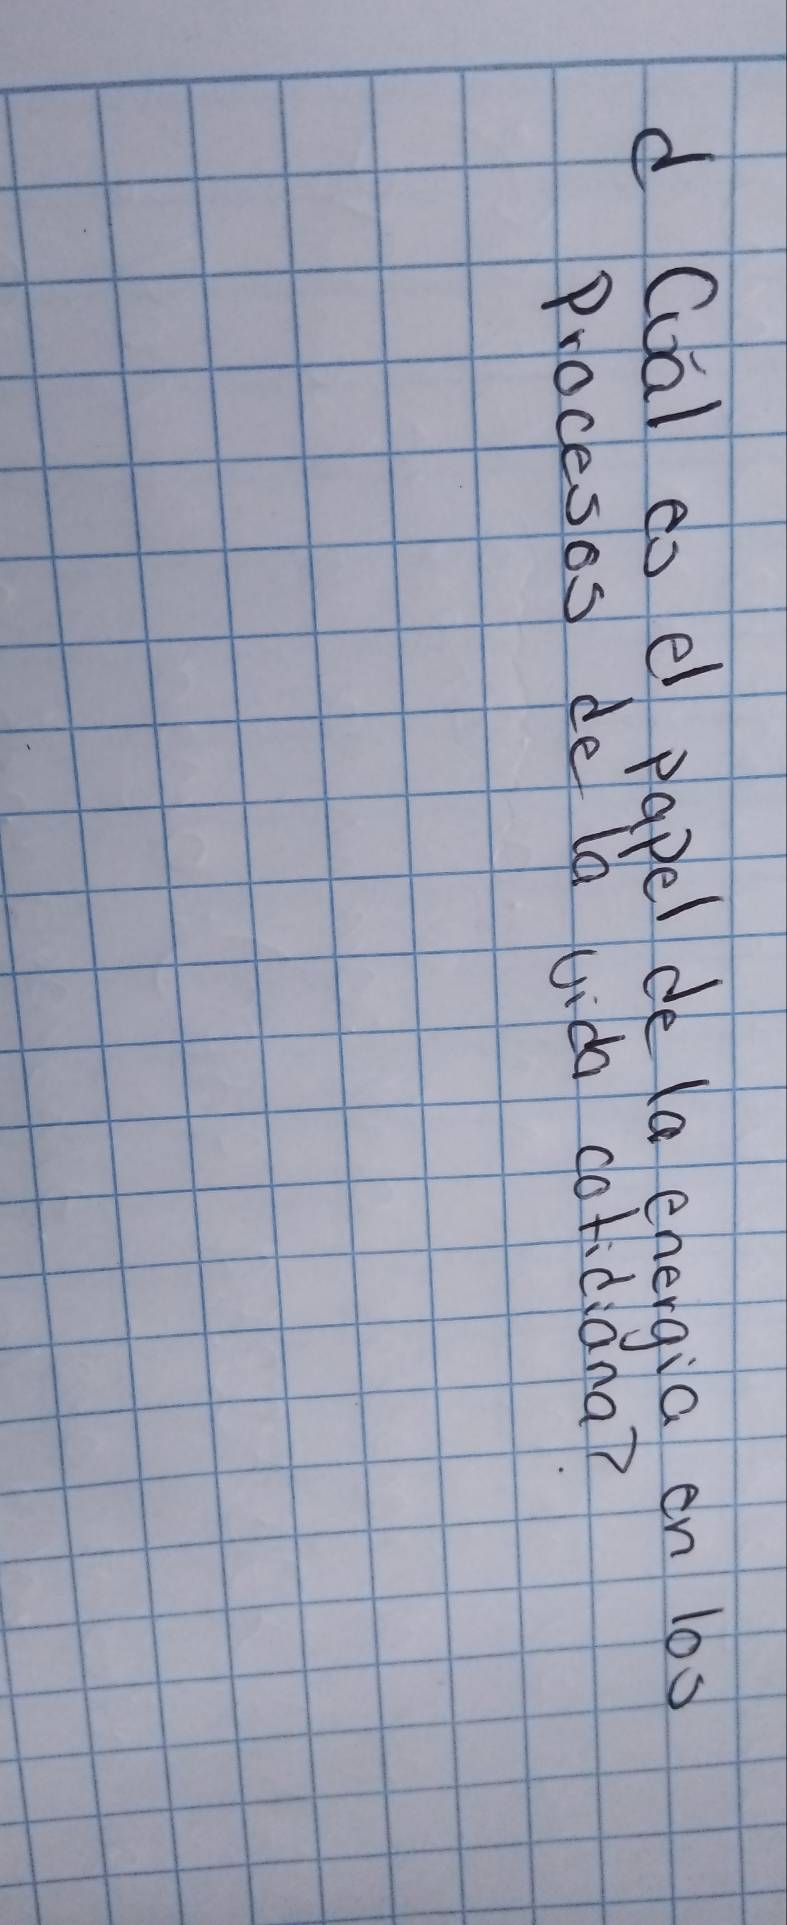 ¿ Cuál es el papel de la energia en los
procesos de la vida cotidiana?